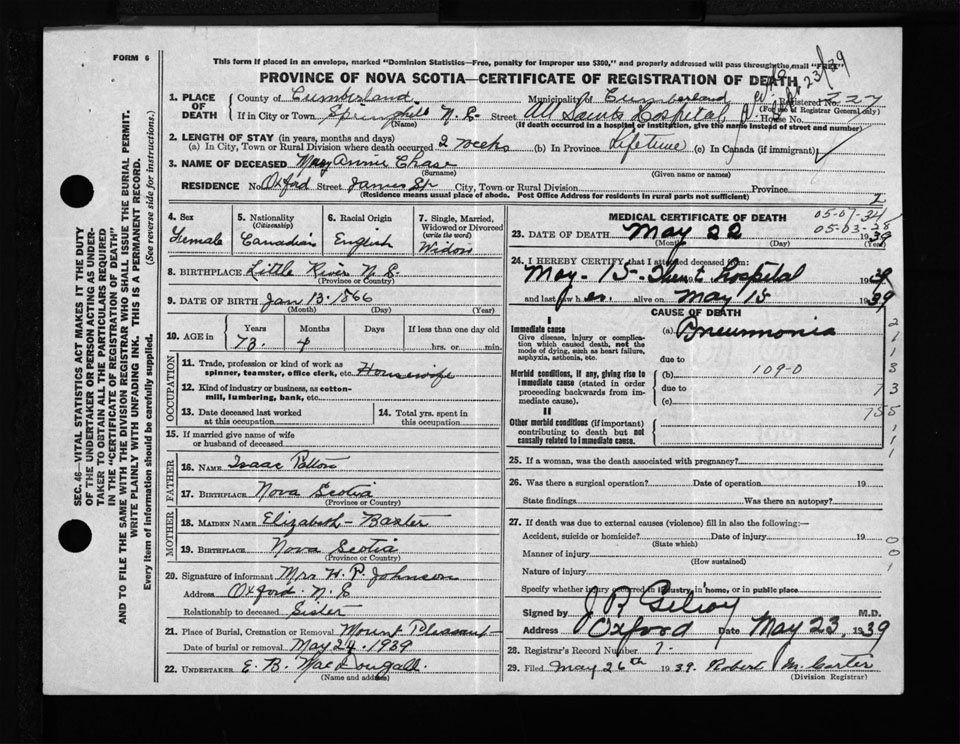 FORM 6
This form if placed in an envelope, marked "Dominion Statistics—Free, penalty for improper use $300," and properly addressed will pass through the mail "FREE"
PROVINCE OF NOVA SCOTIA—CERTIFICATE OF REGISTRATION OF DEATH
SEC. 46—VITAL STATISTICS ACT MAKES IT THE DUTY
OF THE UNDERTAKER OR PERSON ACTING AS UNDER-
TAKER TO OBTAIN ALL THE PARTICULARS REQUIRED
IN THE "CERTIFICATE OF REGISTRATION OF DEATH"
AND TO FILE THE SAME WITH THE DIVISION REGISTRAR WHO SHALL ISSUE THE BURIAL PERMIT.
WRITE PLAINLY WITH UNFADING INK. THIS IS A PERMANENT RECORD.
Every item of information should be carefully supplied. (See reverse side for instructions.)
1. PLACE OF DEATH County of Cumberland Municipality of Cumberland Registered No. 727
(For use of Registrar General only)
If in City or Town, Springhill N.S. Street All Saints Hospital House No.
(Name) (If death occurred in a hospital or institution, give the name instead of street and number)
2. LENGTH OF STAY (in years, months and days)
(a) In City, Town or Rural Division where death occurred 2 weeks (b) In Province Lifetime (c) In Canada (if immigrant)
3. NAME OF DECEASED Mary Annie Chase
(Surname) (Given name or names)
RESIDENCE No. Oxford Street James St City, Town or Rural Division Province
(Residence means usual place of abode. Post Office Address for residents in rural parts not sufficient)
4. Sex Female
5. Nationality (Citizenship) Canadian
6. Racial Origin English
7. Single, Married, Widowed or Divorced (write the word) Widow
8. BIRTHPLACE Little River N.S.
(Province or Country)
9. DATE OF BIRTH Jan 13 1866
(Month) (Day) (Year)
10. AGE in Years 73 Months 4 Days If less than one day old hrs. or min.
OCCUPATION
11. Trade, profession or kind of work as spinner, teamster, office clerk, etc. Housewife
12. Kind of industry or business, as cotton-mill, lumbering, bank, etc.
13. Date deceased last worked at this occupation
14. Total yrs. spent in this occupation
15. If married give name of wife or husband of deceased
FATHER
16. NAME Isaac Patton
17. BIRTHPLACE Nova Scotia
(Province or Country)
MOTHER
18. MAIDEN NAME Elizabeth - Baxter
19. BIRTHPLACE Nova Scotia
(Province or Country)
20. Signature of informant Mrs H. P. Johnson
Address Oxford N.S
Relationship to deceased Sister
21. Place of Burial, Cremation or Removal Mount Pleasant
Date of burial or removal May 24 1939
22. UNDERTAKER E. B. MacDougall
(Name and address)
MEDICAL CERTIFICATE OF DEATH
05-07-34
05-03-28
23. DATE OF DEATH May 22 1939
(Month) (Day) (Year)
24. I HEREBY CERTIFY that I attended deceased from
May - 15 - Then to Hospital 1939
and last saw her alive on May 15 1939
CAUSE OF DEATH
I
Immediate cause (a) Pneumonia
Give disease, injury or complication which caused death, not the mode of dying, such as heart failure, asphyxia, asthenia, etc.
due to
Morbid conditions, if any, giving rise to immediate cause (stated in order proceeding backwards from immediate cause).
(b) 109-0
due to
(c)
II
Other morbid conditions (if important) contributing to death but not causally related to immediate cause.
25. If a woman, was the death associated with pregnancy?
26. Was there a surgical operation? Date of operation 19
State findings Was there an autopsy?
27. If death was due to external causes (violence) fill in also the following:—
Accident, suicide or homicide? Date of injury 19
(State which)
Manner of injury
(How sustained)
Nature of injury
Specify whether injury occurred in industry, in home, or in public place
Signed by J R Gilroy M.D.
Address Oxford Date May 23, 1939
28. Registrar's Record Number 7.
29. Filed May 26th 1939. Robert M. Carter
(Division Registrar)